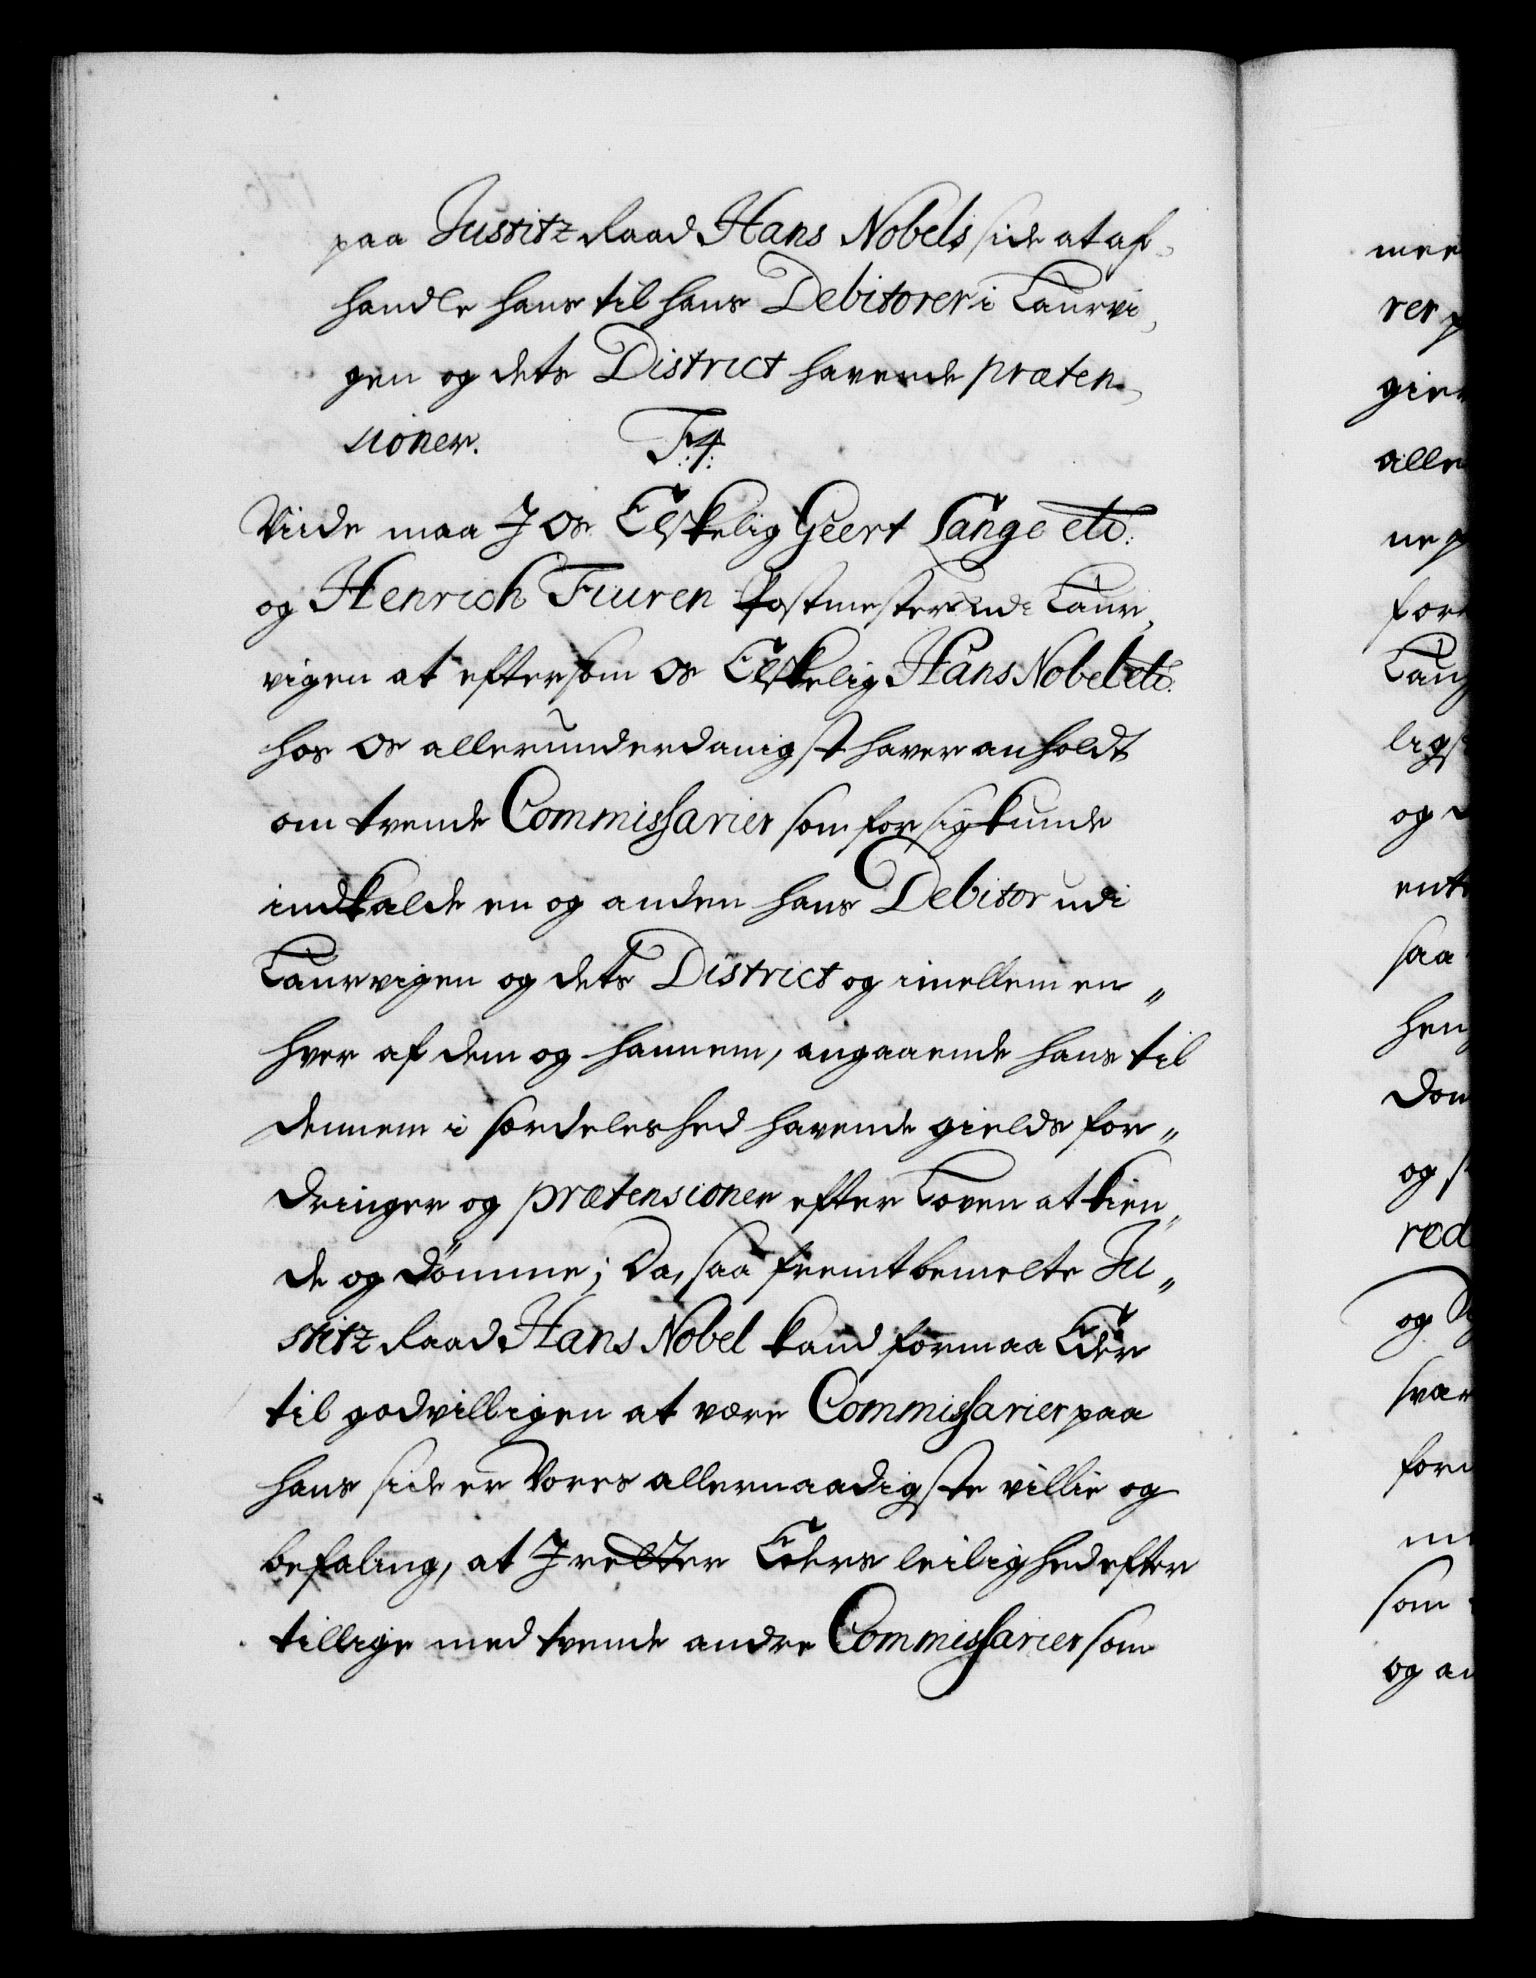 paa Justitz Raad Hans Nobels side at af-
handle hans til hans Debitorer i Laurvi-
gen og dets District havende præten-
sioner. F: 4:
Viide maa I Os Elskelig Geert Lange etc:
og Henrich Fiuren Postmester udi Laur-
vigen at eftersom Os Elskelig Hans Nobel etc.
hos Os allerunderdanigst haver anholdt
om tvende Commissarier som for sig kunde
indkalde en og anden hans Debitor udi
Laurvigen og dets District og imellem en-
hver af dem og hannem, angaaende hans til
dennem i særdeleshed havende gields for-
dringer og prætensioner efter Loven at kien-
de og dömme; Da, saa fremt bemelte Ju-
stitz Raad Hans Nobel kand formaa Eder
til godvilligen at være Commissarier paa
hans side er Vores allernaadigste villie og
befaling, at I retter Eders leilighed efter
tillige med tvende andre Commissarier som
mee
rer p
gier
alle
ne p
for
Laur
ligs
og
ent
saa
hen
Dom
og
red
og
svar
for
som
og an